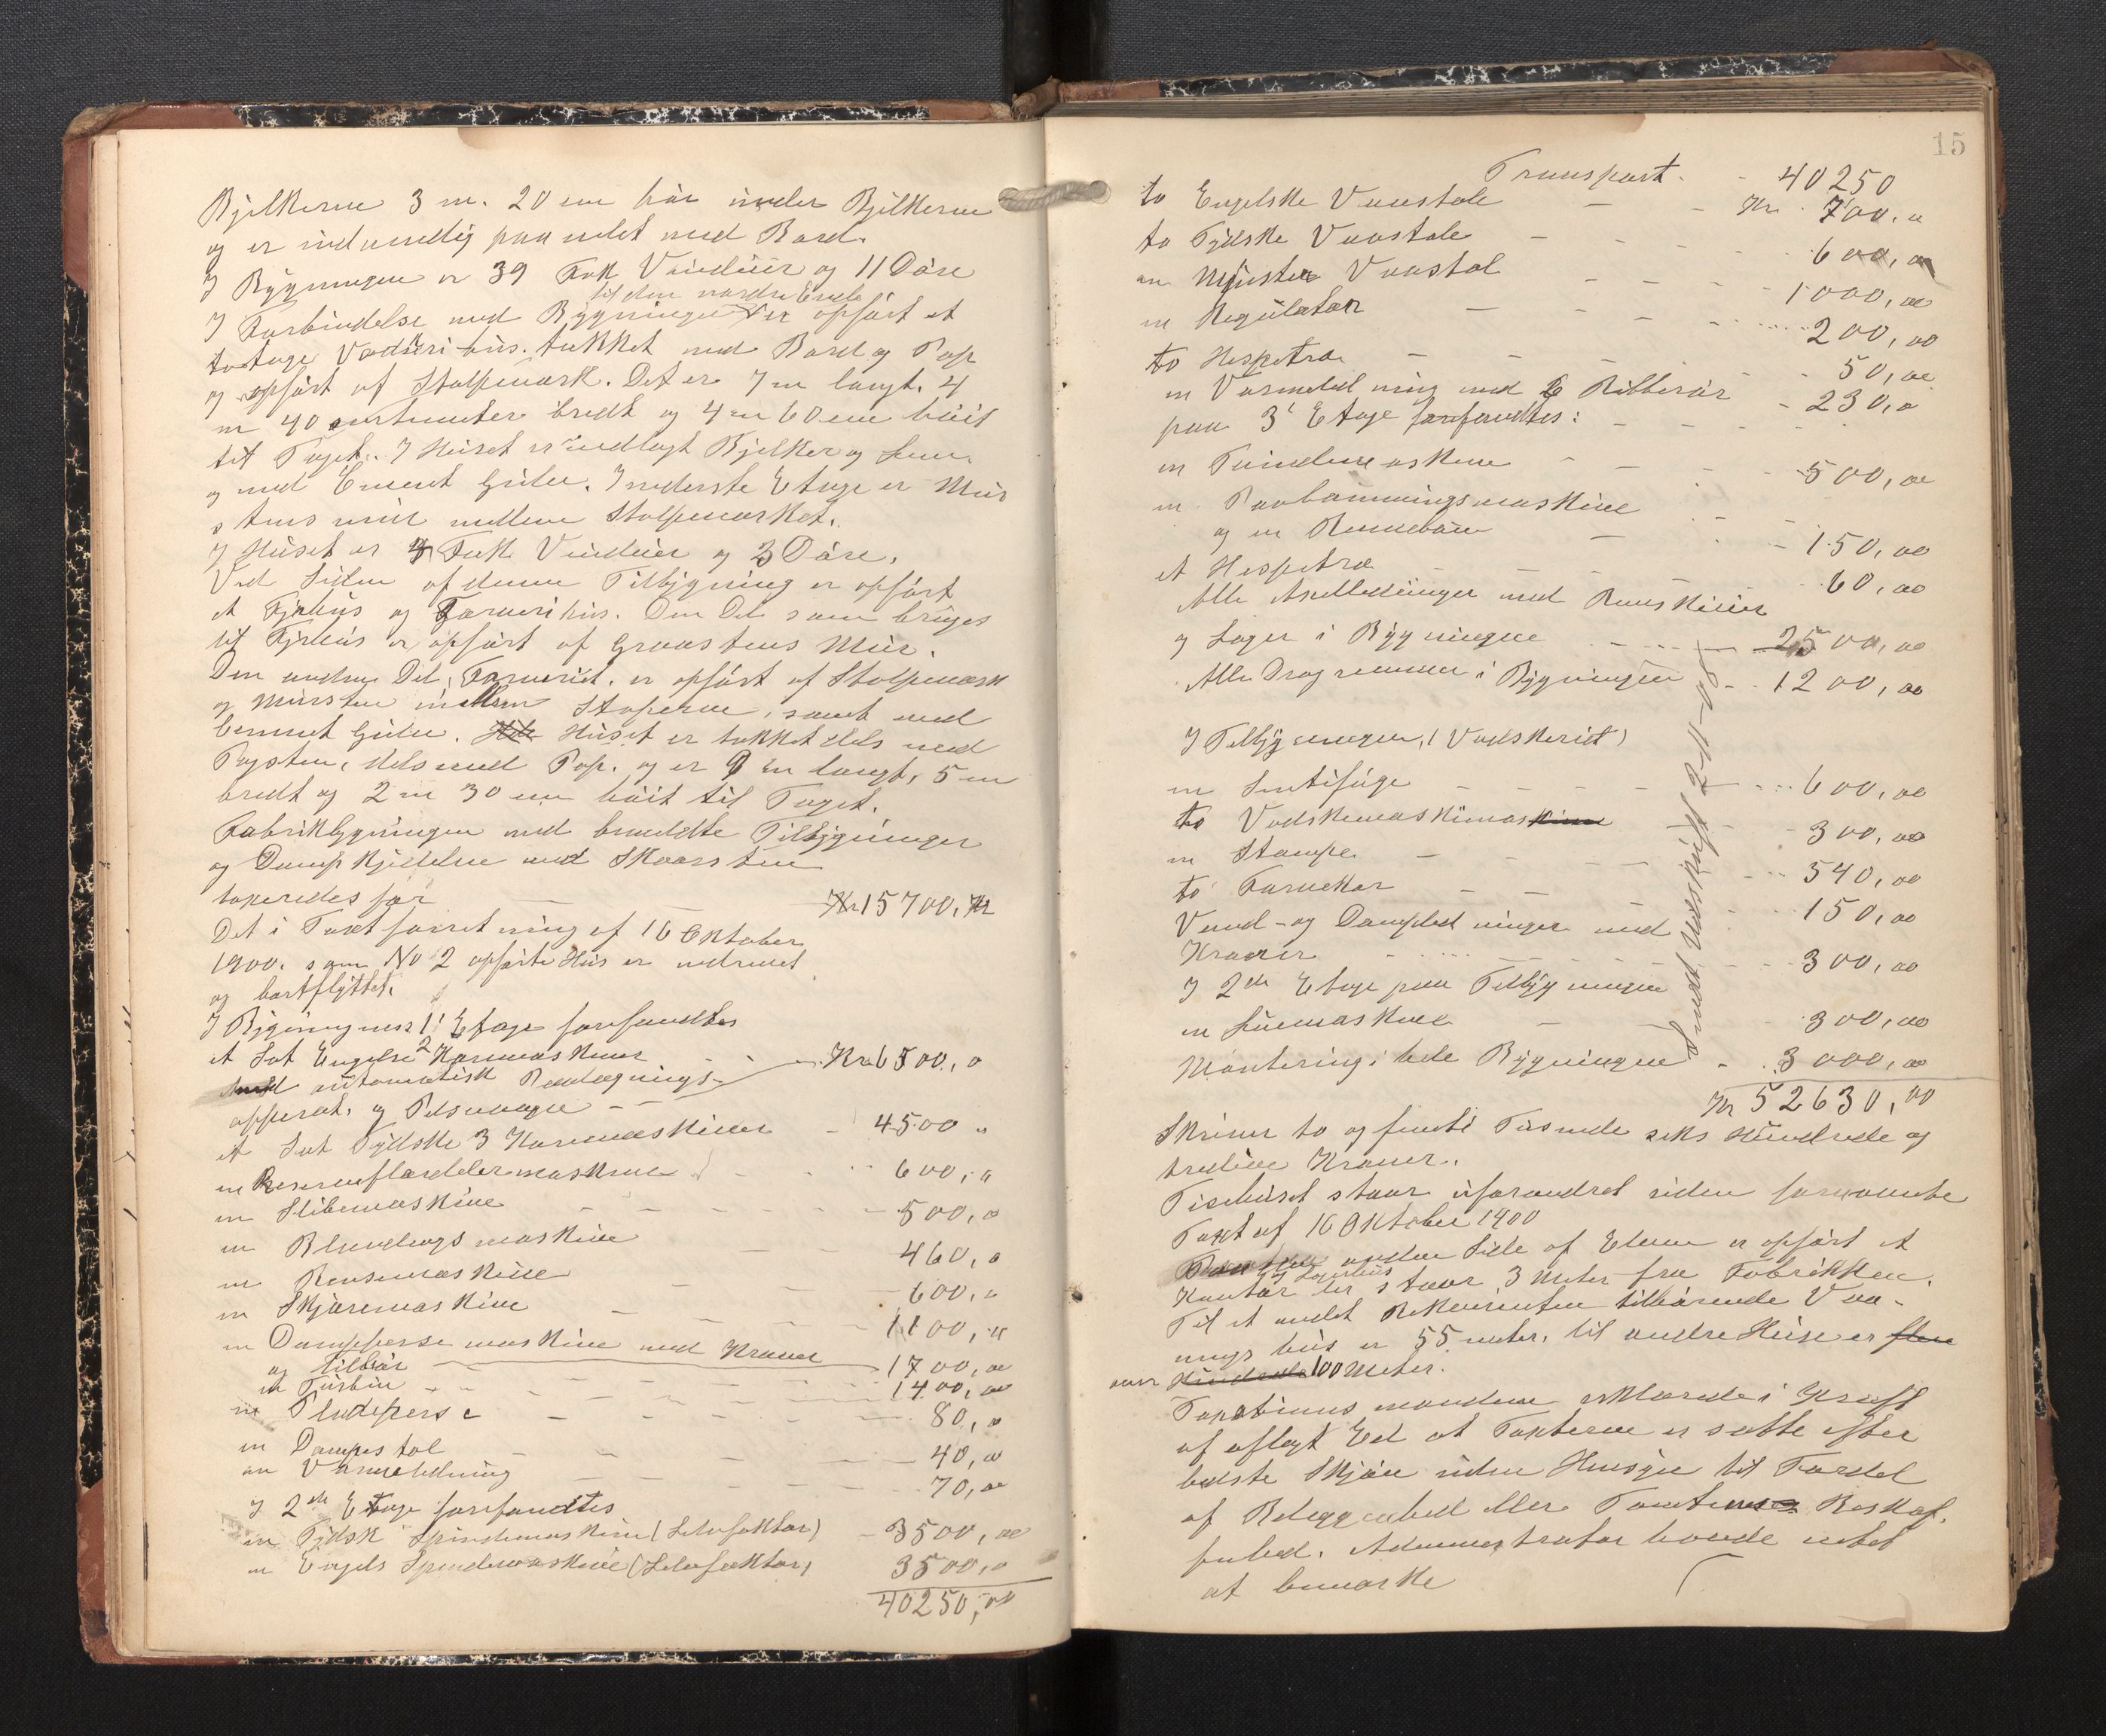 Bjelkerne 3 m. 20 cm hør under Bjelkerne
og er indvendig paneelet med Bord.
I Bygningen er 39 Fak Vinduer og 11 Døre
til den nordre Ende
I Forbindelse med Bygningen er opført et
toetages Vadskerihus. tækket med Bord og Pap
og opført af Stolpeværk. Det er 7 m langt. 4
m 40 centimeter bredt og 4 m 60 cm høit
til Taget. I Huset er indlagt Bjelker og
og med Cement Gulve. I nederste Etage er Mur
stens mur mellem Stolpeværket.
I Huset er 4 Fak Vinduer og 3 Døre.
Ved Siden af denne Tilbygning er opført
et Fyrhus og Farverihus. Den Del som bruges
til Fyrhus er opført af Graastens Mur.
Den anden Del, Farveriet, er opført af Stolpeværk
og Mursten mellem Stolperne, samt med
Cement Gulve. Huset er tækket dels med
Tagsten, dels med Pap. og er 9 m langt, 5 m
bredt og 2 m 30 cm høit til Taget.
Fabrikbygningen med bemeldte Tilbygninger
og Dampkjedelen med Skorsten
taxeredes for — — Kr 15700, Kr
Det i Taxtforretning af 16 Oktober
1900. som No 2 opførte Hus er nedrevet
og bortflyttet.
I Bygningens 1' Etage forefandtes
et Sæt Engelske 2 Karmaskiner - - Kr 6500, 0
med automatisk Paalægnings-
apparat. og Pelsvogn - -
et Sæt Tydske 3 Karmaskiner - 4500 "
en - - 600, "
en Slibemaskine - - 500, 0
en Blandingsmaskine - - 460, 0
en Rensemaskine - - 600, "
en Skjæremaskine - - 1100, "
en Damppersemaskine med Kraner
og tilbør — 1700, 00
en Turbin - - 1400, 00
en Pladeperse - - 80, 0
en Dampstol - - 40, 0
en Varmeledning - - 70, 00
I 2den Etage forefandtes
en Tydsk Spindemaskine (Selvfaktor) - 3500, 00
en Engels Spindemaskine (Selvfaktor) 3500, 0
40250, 00
15
Transport - 40250
to Engelske Vævstole — - Kr. 700, 0
to Tydske Vævstole - - 600, 00
en Mynster Vævstol - - 1000, 00
en Regulator - - 200, 00
to Hespetræ - - 50, 00
en Varmeledning med 6 Ribberør - 230, 0
paa 3' Etage forefandtes:
en Tvindemaskine - - 500, 00
en Paabømningsmaskine
og en Rendebom - - 150, 00
et Hespetræ - - 60, 00
Alle Axelledninger med Remskiver
og Lager i Bygningen - - 2500, 00
Alle Dragremmer i Bygningen - - 1200, 00
I Tilbygningen, (Vadskeriet)
en Sentifuge - - 600, 00
to Vadskemaskiner - - 300, 00
en Stampe - - 540, 00
to Farvekar - - 150, 00
Vand- og Dampledninger med
Kraner - - 300, 00
I 2den Etage paa Tilbygningen
en Luemaskine - - 300, 00
Montering i hele Bygningen - 3000, 00
Kr 52630, 00
Sendt Udskrift 2-11-08
Skriver to og femti Tusende seks Hundrede og
tredive Kroner.
Tisehuset staar uforandret siden fornævnte
Taxt af 16 Oktober 1900
Paa den anden Side af Elven er opført et
og Lagerhus
Kontor der staar 3 Meter fra Fabrikken.
Til et andet Rekvirenten tilhørende Vaa-
nings hus er 55 meter. til andre Huse er flere
over Hundrede 100 Meter.
Taxations mændene erklærede i Kraft
af aflagt Ed at Taxterne er satte efter
bedste Skjøn uden Hensyn til Fordel
af Beleggenhed eller Tomtens Beskaf-
fenhed. Administrator havde intet
at bemærke